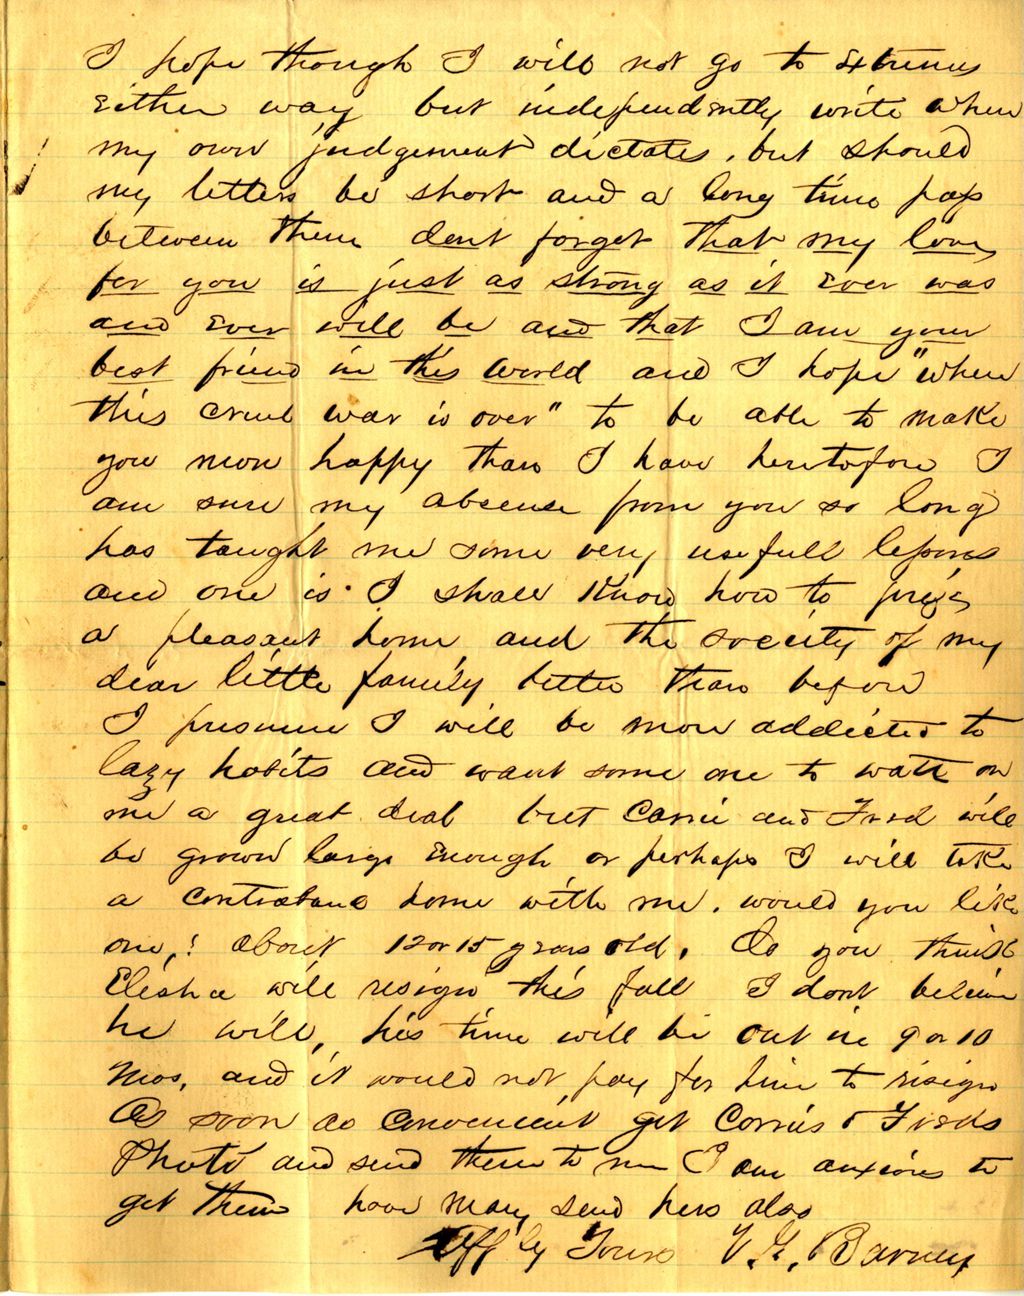 I hope though I will not go to extremes
either way but independently write when
my own judgement dictates, but should
my letters be short and a long time pass
between them dont forget that my love
for you is just as strong as it ever was
and ever will be and that I am your
best friend in this world and I hope "when
this cruel war is over" to be able to make
you more happy than I have heretofore I
am sure my absence from you so long
has taught me some very usefull lessons
and one is I shall know how to prize
a pleasant home and the soceity of my
dear little family better than before
I presume I will be more addicted to
lazy habits and want some one to wait on
me a great deal but Carrie and Fred will
be grown large enough or perhaps I will take
a contraband home with me. would you like
one,? about 12 or 15 years old. Do you think
Elisha will resign this fall I dont believe
he will, his time will be out in 9 or 10
mos, and it would not pay for him to resign
As soon as convenient get Carries & Freds
Photo and send them to me I am anxious to
get them have Mary send hers also
Affly Yours V. G. Barney